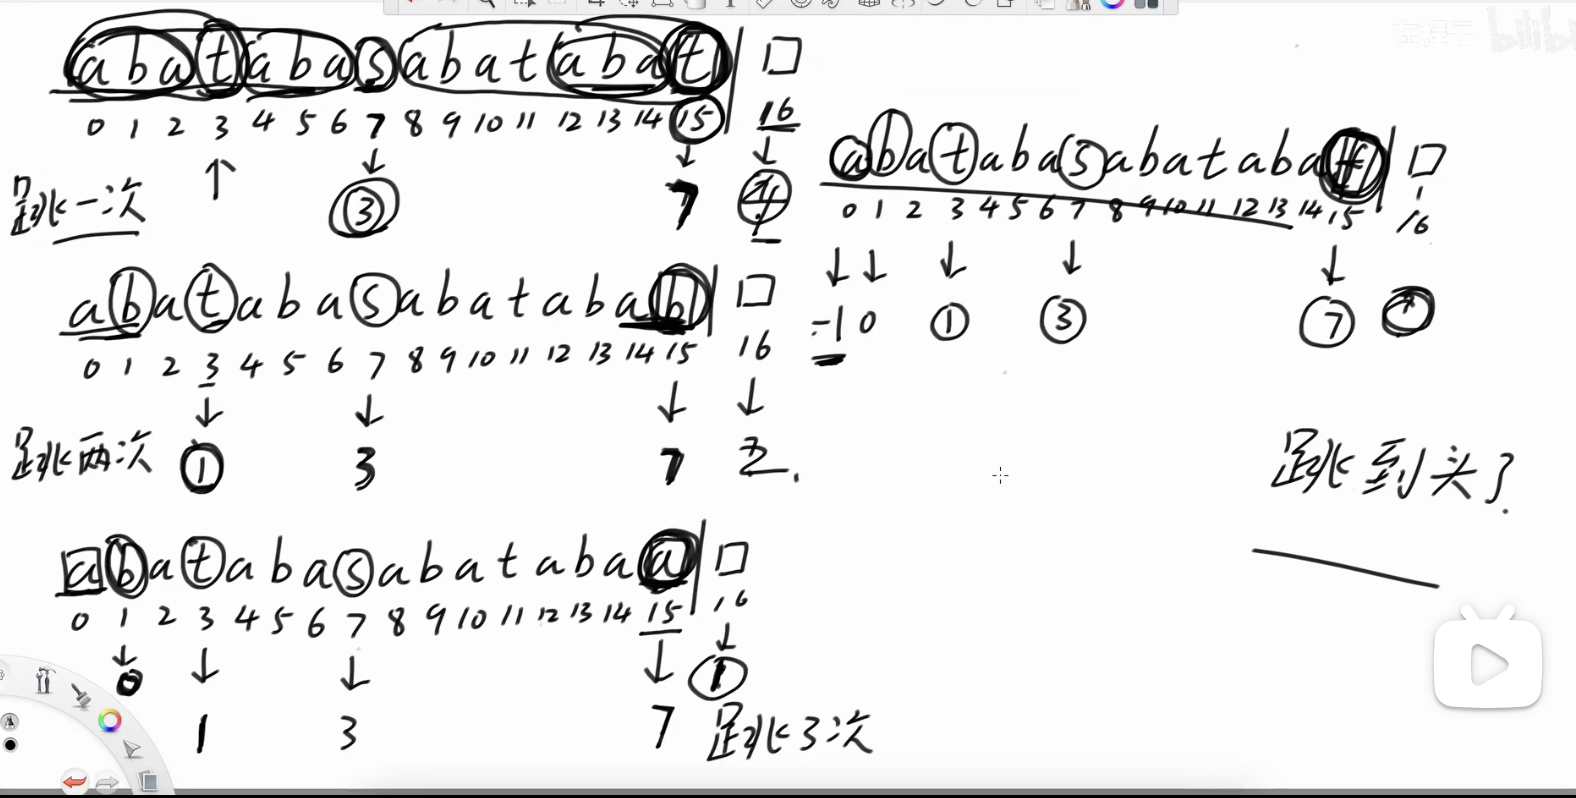 abatabasabatabat
0 1 2 3 4 5 6 7 8 9 10 11 12 13 14 15 16
跳一次
3 7 4
abatabasabatabab
0 1 2 3 4 5 6 7 8 9 10 11 12 13 14 15 16
跳两次
1 3 7 2
abatabasabatabaa
0 1 2 3 4 5 6 7 8 9 10 11 12 13 14 15 16
0 1
1 3 7
跳3次
abatabasabataba
0 1 2 3 4 5 6 7 8 9 10 11 12 13 14 15 16
-1 0 1 3 7
跳到头?
bilibili